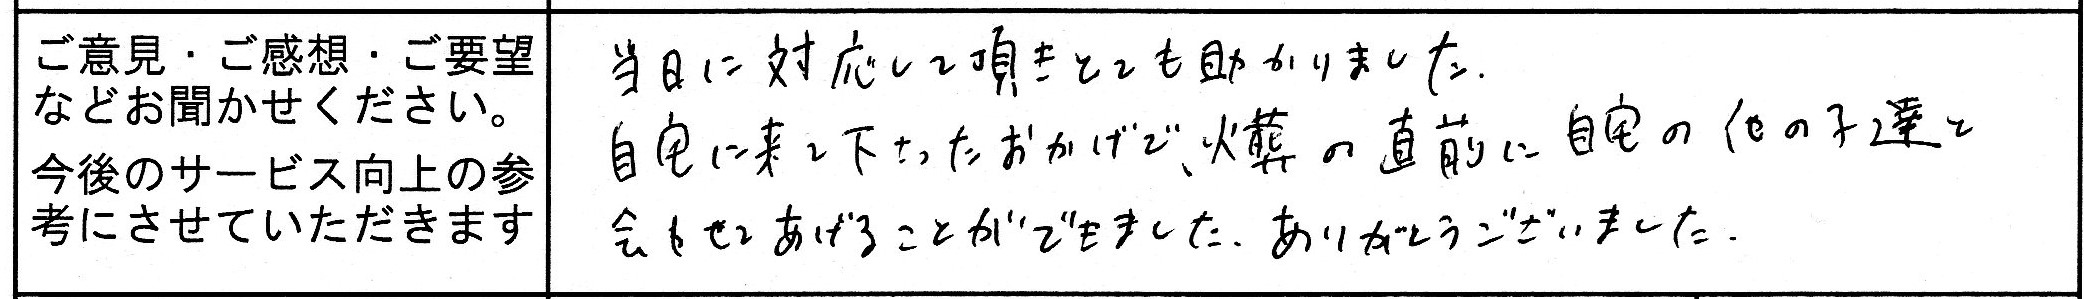 ご意見・ご感想・ご要望
などお聞かせください。
今後のサービス向上の参
考にさせていただきます
当日に対応して頂きとても助かりました.
自宅に来て下さったおかげで、火葬の直前に自宅の他の子達と
会わせてあげることができました. ありがとうございました.